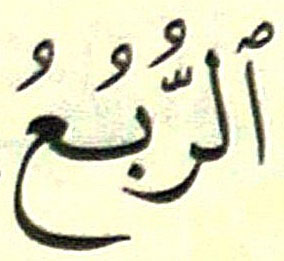 ٱلرُّبُعُ